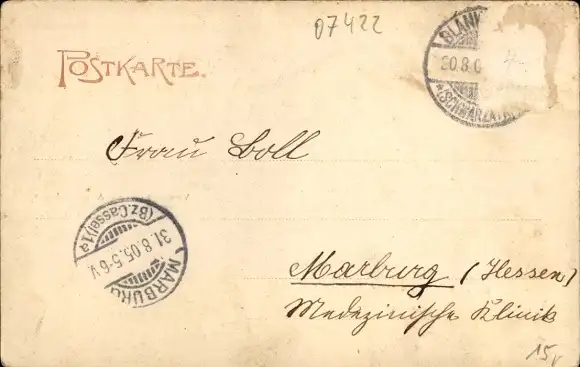 07422
POSTKARTE.
BLANK
30.8.0
*(SCHWARZATAL
Frau Boll
(Bz. Cassel) 1a
31.8.05.5-6V
MARBURG
Marburg (Hessen)
Medezinische Klinik
15,